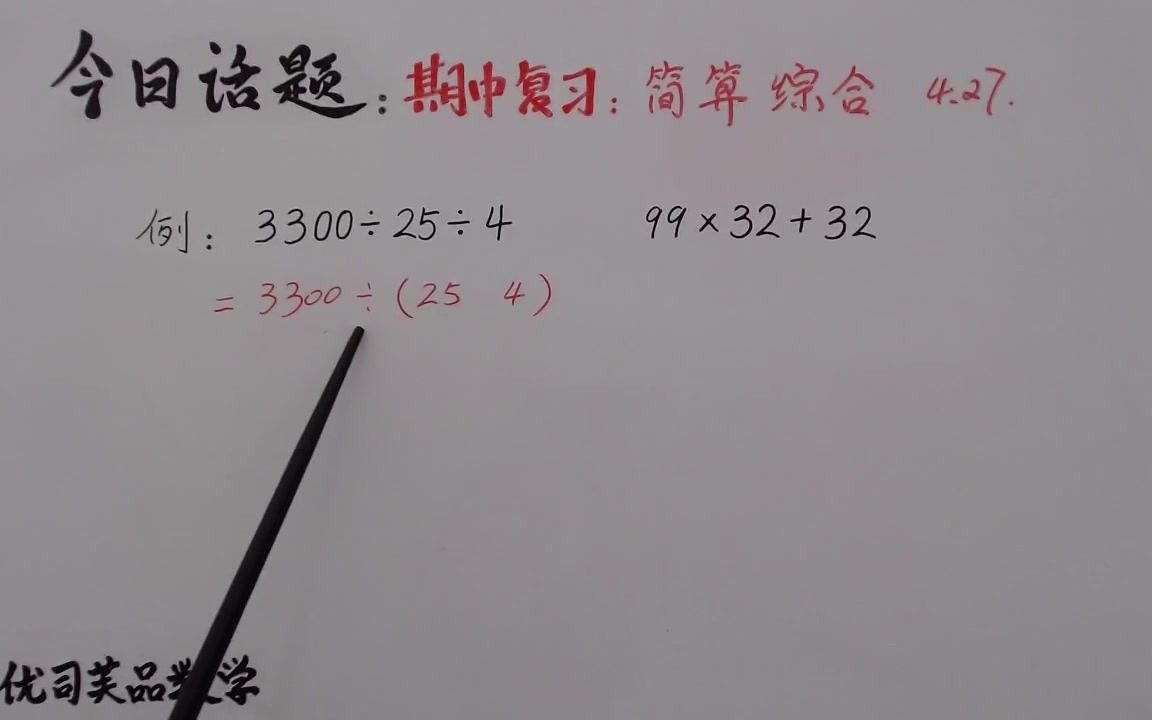 今日话题：期中复习：简算 综合 4.27.
例： 3300÷25÷4 99×32+32
= 3300÷(25 4)
优司芙品数学